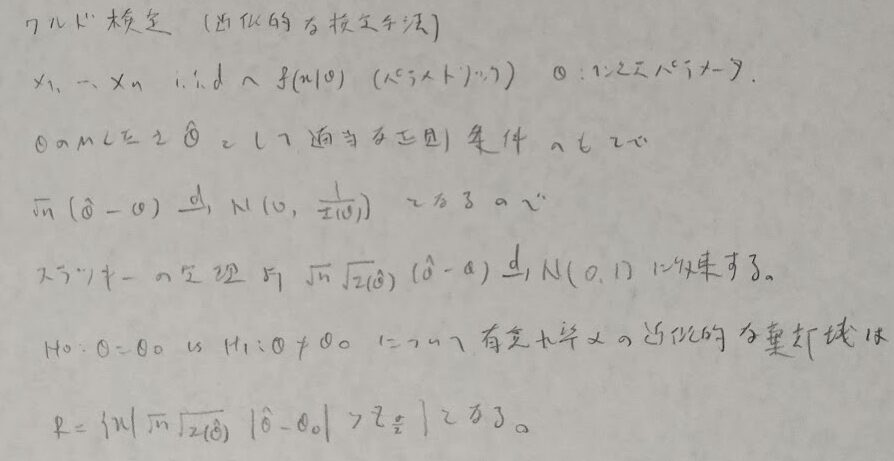 ワルド検定 (近似的な検定手法)
x1, …, xn i.i.d ~ f(x|θ) (パラメトリック) θ: 1次元パラメータ.
θのMLEを θ̂ として適当な正則条件のもとで
√n (θ̂ - θ) →d N(0, 1/I(θ)) となるので
スラツキーの定理より √n √I(θ̂) (θ̂ - θ) →d N(0,1) に収束する。
H0: θ = θ0 vs H1: θ ≠ θ0 について有意水準αの近似的な棄却域は
R = {x| √n √I(θ̂) |θ̂ - θ0| > z α/2 } となる。